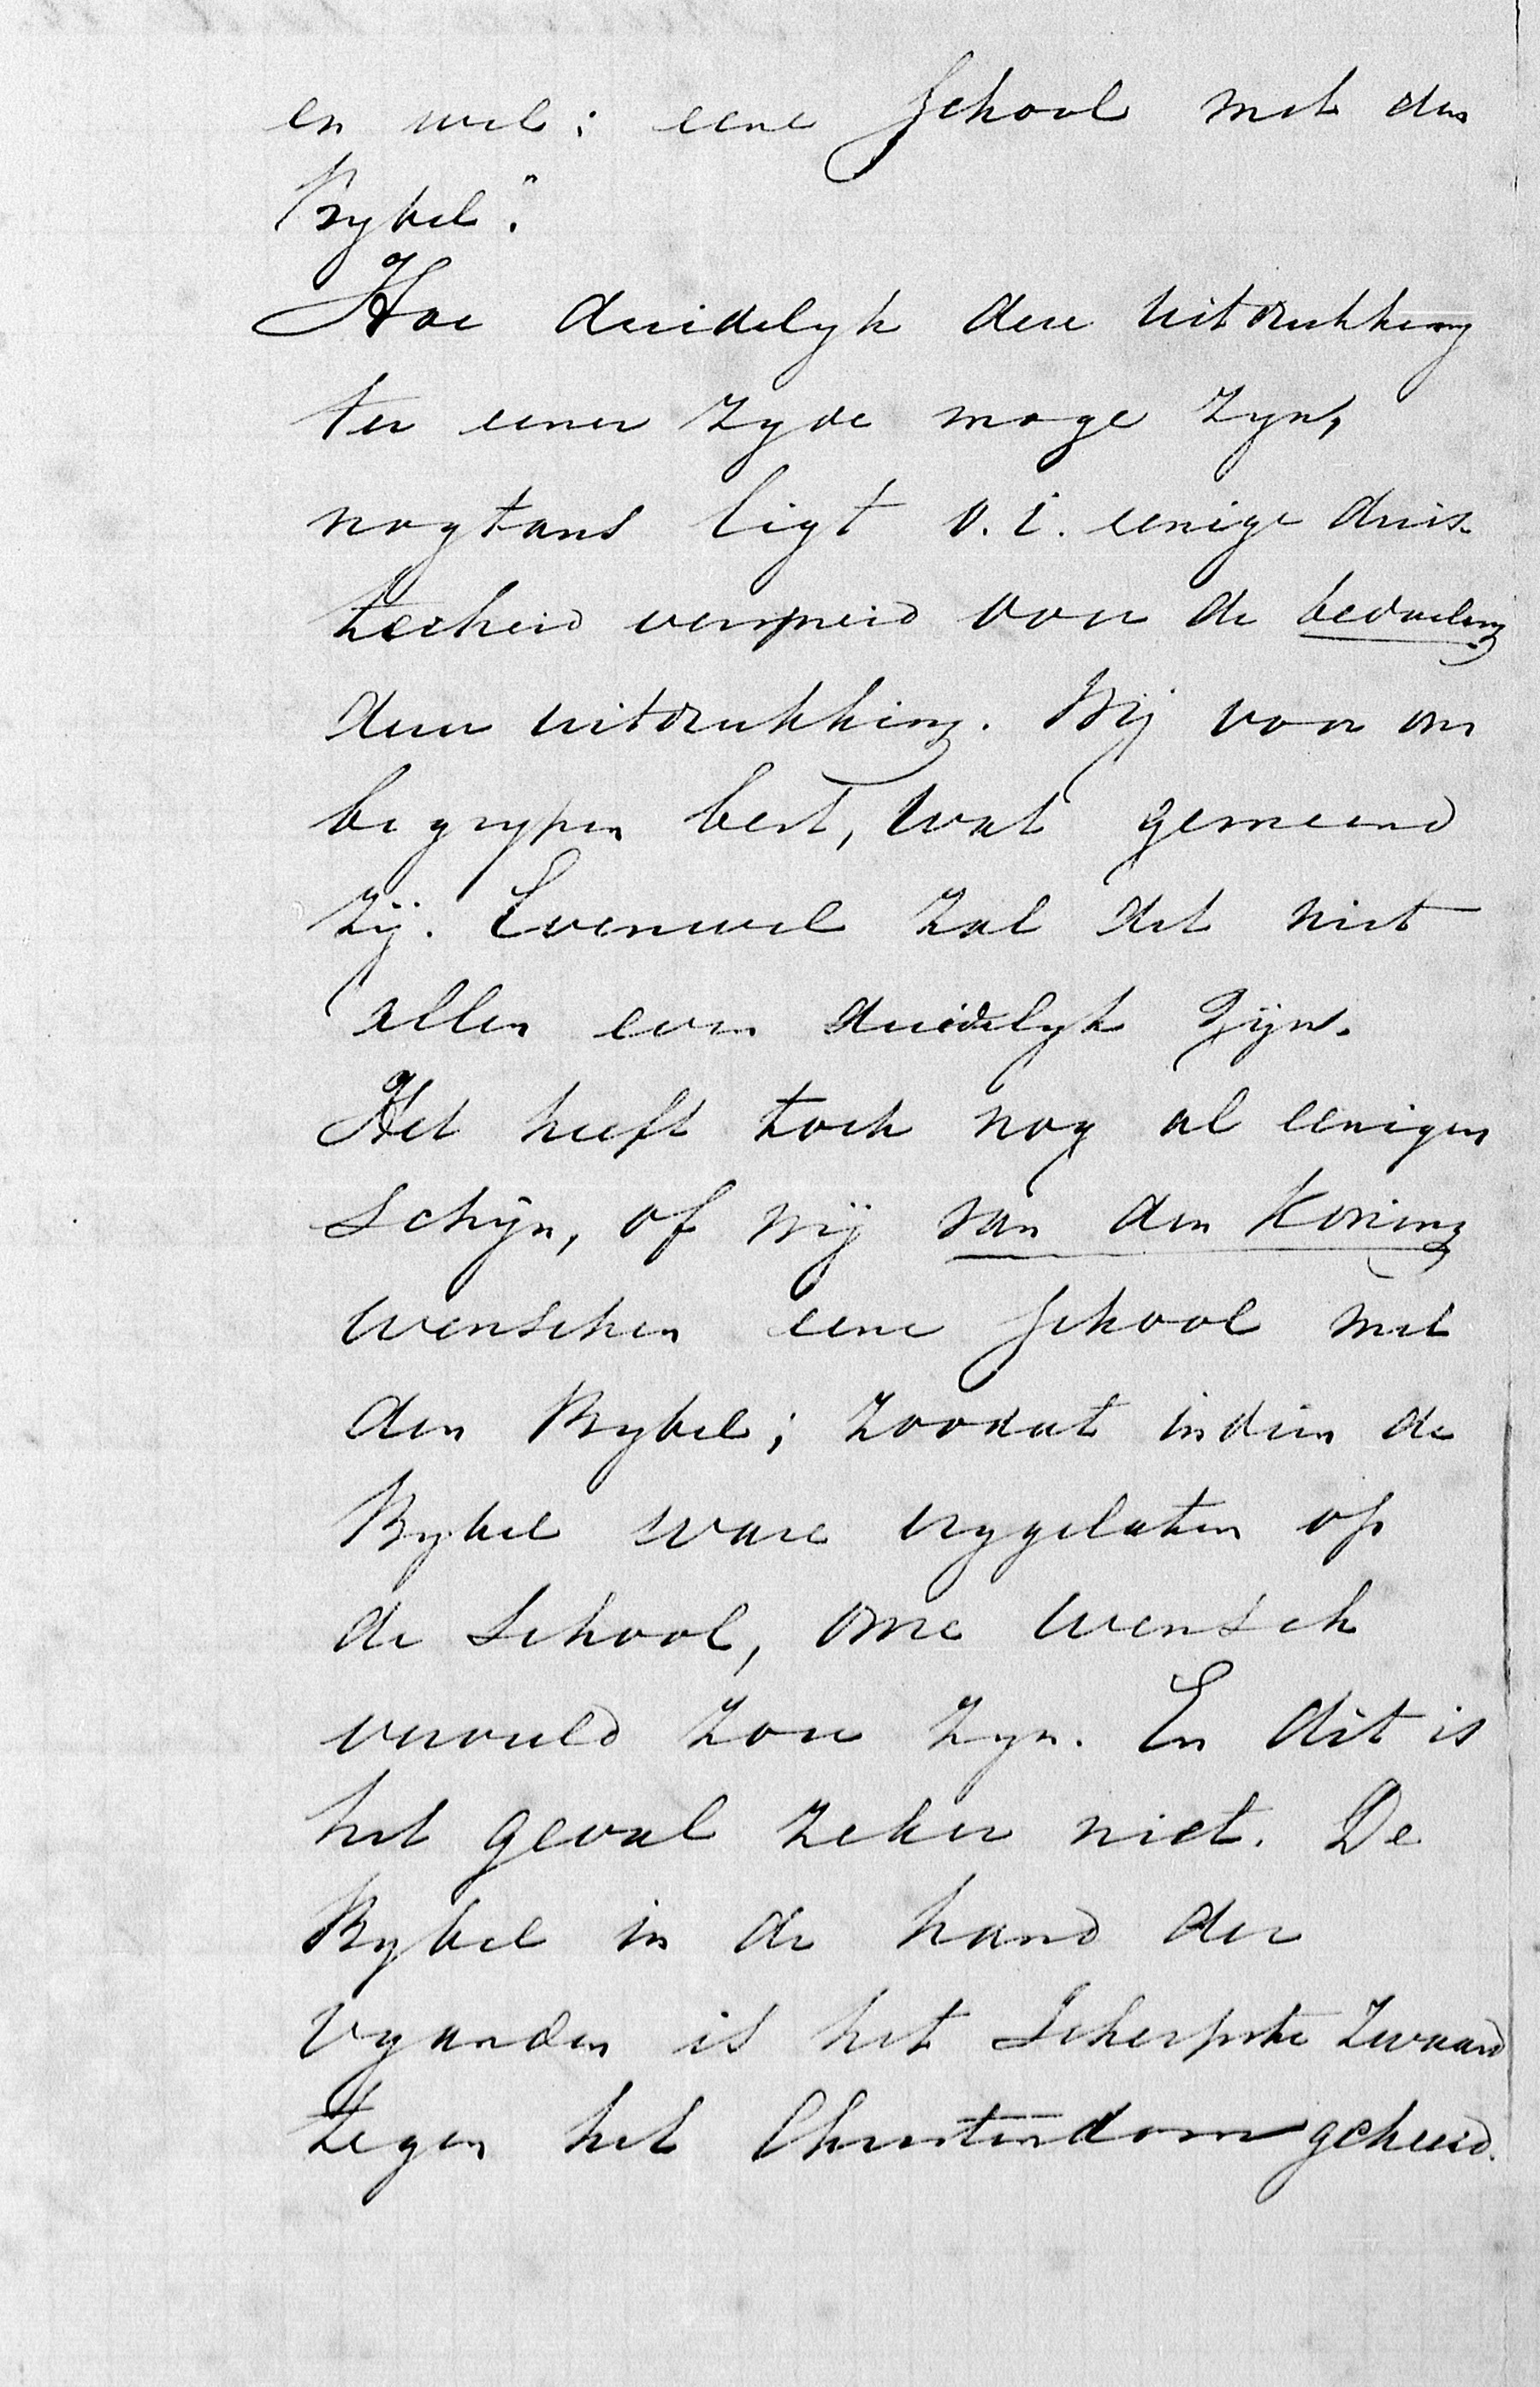 en wel: eene School met den
Bybel".
Hoe duidelyk deze uitdrukking
ter eener zyde moge zyn,
nogtans ligt o.i. eenige duis-
terheid verspreid over de bedoeling
dezer uitdrukking. Wij voor ons
begrypen best, wat gemeend
zij. Evenwel zal dit niet
allen even duidelyk zijn.
Het heeft toch nog al eenigen
schijn, of wij van den Koning
wenschen eene School met
den Bybel; zoodat indien de
Bybel ware vrygelaten op
de School, onze wensch
vervuld zou zyn. En dit is
het geval zeker niet. De
Bybel in de hand der
vyanden is het scherpste zwaard
tegen het Christendom gekeerd.